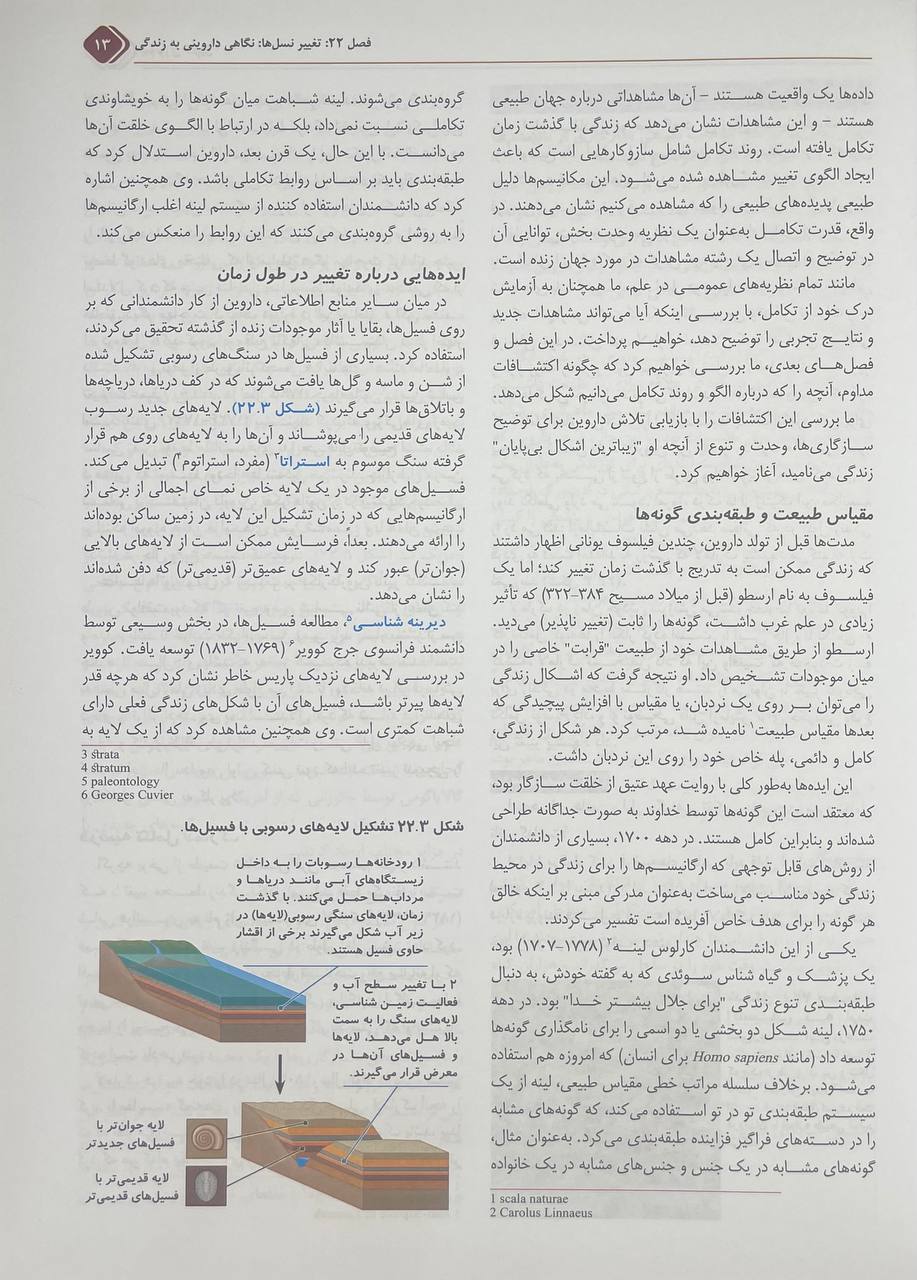 فصل ۲۲: تغییر نسل‌ها: نگاهی داروینی به زندگی
۱۳
داده‌ها یک واقعیت هستند – آن‌ها مشاهداتی درباره جهان طبیعی
هستند – و این مشاهدات نشان می‌دهد که زندگی با گذشت زمان
تکامل یافته است. روند تکامل شامل سازوکارهایی است که باعث
ایجاد الگوی تغییر مشاهده شده می‌شود. این مکانیسم‌ها دلیل
طبیعی پدیده‌های طبیعی را که مشاهده می‌کنیم نشان می‌دهند. در
واقع، قدرت تکامل به‌عنوان یک نظریه وحدت بخش، توانایی آن
در توضیح و اتصال یک رشته مشاهدات در مورد جهان زنده است.
مانند تمام نظریه‌های عمومی در علم، ما همچنان به آزمایش
درک خود از تکامل، با بررسی اینکه آیا می‌تواند مشاهدات جدید
و نتایج تجربی را توضیح دهد، خواهیم پرداخت. در این فصل و
فصل‌های بعدی، ما بررسی خواهیم کرد که چگونه اکتشافات
مداوم، آنچه را که درباره الگو و روند تکامل می‌دانیم شکل می‌دهد.
ما بررسی این اکتشافات را با بازیابی تلاش داروین برای توضیح
سازگاری‌ها، وحدت و تنوع از آنچه او "زیباترین اشکال بی‌پایان"
زندگی می‌نامید، آغاز خواهیم کرد.
مقیاس طبیعت و طبقه‌بندی گونه‌ها
مدت‌ها قبل از تولد داروین، چندین فیلسوف یونانی اظهار داشتند
که زندگی ممکن است به تدریج با گذشت زمان تغییر کند؛ اما یک
فیلسوف به نام ارسطو (قبل از میلاد مسیح ۳۸۴–۳۲۲) که تأثیر
زیادی در علم غرب داشت، گونه‌ها را ثابت (تغییر ناپذیر) می‌دید.
ارسطو از طریق مشاهدات خود از طبیعت "قرابت" خاصی را در
میان موجودات تشخیص داد. او نتیجه گرفت که اشکال زندگی
را می‌توان بر روی یک نردبان، یا مقیاس با افزایش پیچیدگی که
بعدها مقیاس طبیعت۱ نامیده شد، مرتب کرد. هر شکل از زندگی،
کامل و دائمی، پله خاص خود را روی این نردبان داشت.
این ایده‌ها به‌طور کلی با روایت عهد عتیق از خلقت سازگار بود،
که معتقد است این گونه‌ها توسط خداوند به صورت جداگانه طراحی
شده‌اند و بنابراین کامل هستند. در دهه ۱۷۰۰، بسیاری از دانشمندان
از روش‌های قابل توجهی که ارگانیسم‌ها را برای زندگی در محیط
زندگی خود مناسب می‌ساخت به‌عنوان مدرکی مبنی بر اینکه خالق
هر گونه را برای هدف خاص آفریده است تفسیر می‌کردند.
یکی از این دانشمندان کارلوس لینه۲ (۱۷۷۸–۱۷۰۷) بود،
یک پزشک و گیاه شناس سوئدی که به گفته خودش، به دنبال
طبقه‌بندی تنوع زندگی "برای جلال بیشتر خدا" بود. در دهه
۱۷۵۰، لینه شکل دو بخشی یا دو اسمی را برای نامگذاری گونه‌ها
توسعه داد (مانند Homo sapiens برای انسان) که امروزه هم استفاده
می‌شود. برخلاف سلسله مراتب خطی مقیاس طبیعی، لینه از یک
سیستم طبقه‌بندی تو در تو استفاده می‌کند، که گونه‌های مشابه
را در دسته‌های فراگیر فزاینده طبقه‌بندی می‌کرد. به‌عنوان مثال،
گونه‌های مشابه در یک جنس و جنس‌های مشابه در یک خانواده
1 scala naturae
2 Carolus Linnaeus
گروه‌بندی می‌شوند. لینه شباهت میان گونه‌ها را به خویشاوندی
تکاملی نسبت نمی‌داد، بلکه در ارتباط با الگوی خلقت آن‌ها
می‌دانست. با این حال، یک قرن بعد، داروین استدلال کرد که
طبقه‌بندی باید بر اساس روابط تکاملی باشد. وی همچنین اشاره
کرد که دانشمندان استفاده کننده از سیستم لینه اغلب ارگانیسم‌ها
را به روشی گروه‌بندی می‌کنند که این روابط را منعکس می‌کند.
ایده‌هایی درباره تغییر در طول زمان
در میان سایر منابع اطلاعاتی، داروین از کار دانشمندانی که بر
روی فسیل‌ها، بقایا یا آثار موجودات زنده از گذشته تحقیق می‌کردند،
استفاده کرد. بسیاری از فسیل‌ها در سنگ‌های رسوبی تشکیل شده
از شن و ماسه و گل‌ها یافت می‌شوند که در کف دریاها، دریاچه‌ها
و باتلاق‌ها قرار می‌گیرند (شکل ۲۲.۳). لایه‌های جدید رسوب
لایه‌های قدیمی را می‌پوشاند و آن‌ها را به لایه‌های روی هم قرار
گرفته سنگ موسوم به استراتا۳ (مفرد، استراتوم۴) تبدیل می‌کند.
فسیل‌های موجود در یک لایه خاص نمای اجمالی از برخی از
ارگانیسم‌هایی که در زمان تشکیل این لایه، در زمین ساکن بوده‌اند
را ارائه می‌دهند. بعداً، فرسایش ممکن است از لایه‌های بالایی
(جوان‌تر) عبور کند و لایه‌های عمیق‌تر (قدیمی‌تر) که دفن شده‌اند
را نشان می‌دهد.
دیرینه شناسی۵، مطالعه فسیل‌ها، در بخش وسیعی توسط
دانشمند فرانسوی جرج کوویر۶ (۱۷۶۹–۱۸۳۲) توسعه یافت. کوویر
در بررسی لایه‌های نزدیک پاریس خاطر نشان کرد که هرچه قدر
لایه‌ها پیرتر باشد، فسیل‌های آن با شکل‌های زندگی فعلی دارای
شباهت کمتری است. وی همچنین مشاهده کرد که از یک لایه به
3 strata
4 stratum
5 paleontology
6 Georges Cuvier
شکل ۲۲.۳ تشکیل لایه‌های رسوبی با فسیل‌ها.
۱ رودخانه‌ها رسوبات را به داخل
زیستگاه‌های آبی مانند دریاها و
مرداب‌ها حمل می‌کنند. با گذشت
زمان، لایه‌های سنگی رسوبی(لایه‌ها) در
زیر آب شکل می‌گیرند برخی از اقشار
حاوی فسیل هستند.
۲ با تغییر سطح آب و
فعالیت زمین شناسی،
لایه‌های سنگ را به سمت
بالا هل می‌دهد، لایه‌ها
و فسیل‌های آن‌ها در
معرض قرار می‌گیرند.
لایه جوان‌تر با
فسیل‌های جدیدتر
لایه قدیمی‌تر با
فسیل‌های قدیمی‌تر